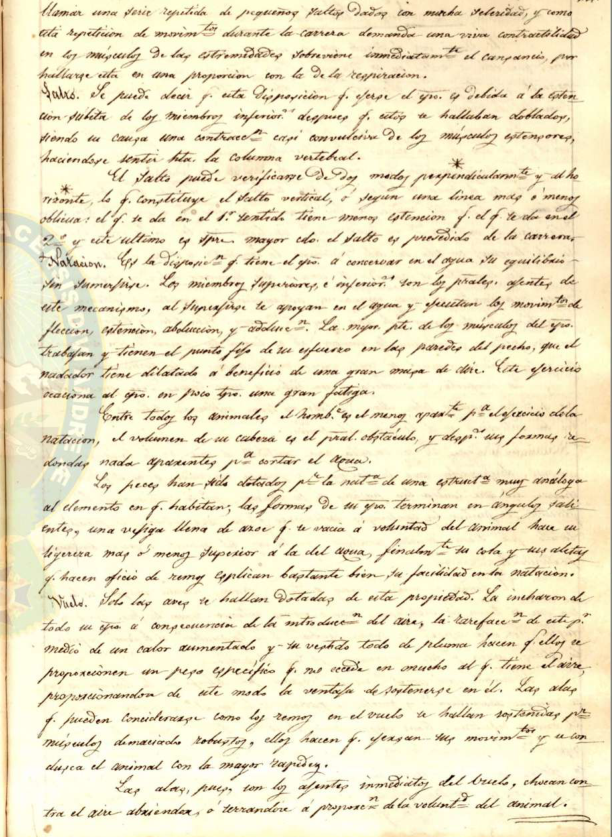 llamar una serie repetida de pequeños saltos dados con mucha seleridad, y como
esta repeticion de movim.tos durante la carrera demanda una viva contractilidad
en los músculos de las estremidades sobreviene inmediatam.te el cansancio, por
hallarse esta en una proporcion con la de la respiracion.
Salto. Se puede decir q. esta disposicion q. ejerse el cpo. es debida á la esten-
cion subita de los miembros inferior.s despues q. estos se hallaban doblados,
siendo su causa una contracc.n casi convulciva de los músculos estensores,
haciendose sentir hta. la columna vertebral.
El salto puede verificarse de dos modos perpendicularm.te y al ho-
risonte, lo q. constituye el salto vertical, ó segun una linea mas ó menos
oblicua: el q. se da en el 1.o sentido tiene menos estencion q. el q. se da en el
2.o y este ultimo es spre. mayor cdo. el salto es presedido de la carrera.
Natacion. Es la disposic.n q. tiene el cpo. á concervar en el agua su equilibrio
sin sumerjirse. Los miembros superiores, é inferior.s son los prales. ajentes de
este mecanismo, al superjirse se apoyan en el agua y ejecutan los movim.tos de
fleccion, estencion, abduccion, y adducc.n La mayor pte. de los músculos del cpo.
trabajan y tienen el punto fijo de su esfuerzo en las paredes del pecho, que el
nadador tiene dilatado á beneficio de una gran masa de aire. Este ejercicio
ocaciona al cpo. en poco tpo. una gran fatiga.
Entre todos los animales el homb.e es el menos aparte p.a el ejercicio de la
natacion, el volumen de su cabeza es el pral. obstáculo, y desp.s sus formas re-
dondas nada aparentes p.a cortar el agua.
Los peces han sido dotados p.r la nat.za de una estruct.a muy análoga
al elemento en q. habitan, las formas de su cpo. terminan en ángulos sali-
entes, una vejiga llena de azoe q. se vacia á voluntad del animal hace su
ligereza mas ó menos superior á la del agua, finalm.te su cola y sus aletas
q. hacen oficio de remos esplican bastante bien su facilidad en la natacion.
Vuelo. Solo las aves se hallan dotadas de esta propiedad. La incharon de
todo su cpo. á consecuencia de la introducc.n del aire, la rarefacc.n de este p.r
medio de un calor aumentado y su vestido todo de pluma hacen q. ellos se
proporcionen un peso especifico q. no ecede en mucho al q. tiene el aire,
proporcionandose de este modo la ventaja de sostenerse en él. Las alas
q. pueden considerarse como los remos en el vuelo se hallan sostenidas p.r
músculos demaciado robustos, ellos hacen q. ejersan sus movim.tos y se con-
dusca el animal con la mayor rapidez.
Las alas, pues, son los ajentes inmediatos del vuelo, chocan con-
tra el aire abriendose, ó serrandose á proporc.n de la volunt.d del animal.